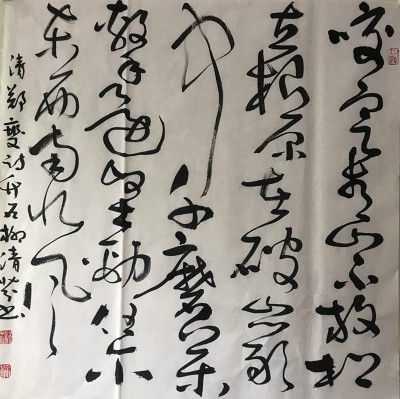 咬定青山不放松
立根原在破岩
中千磨万
擊還堅勁任尔
東西南北风
清鄭燮诗竹石柳清书